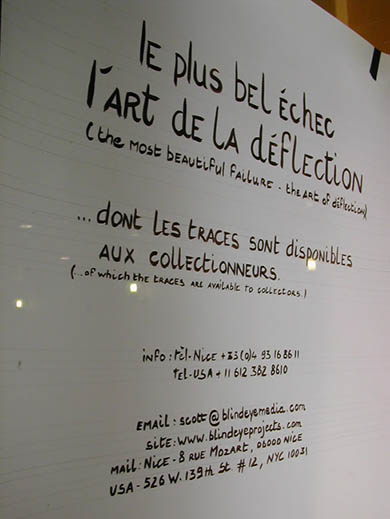 le plus bel échec
l'ART DE LA déflection
(the most beautiful failure - the art of déflection)
...dont les traces sont disponibles
aux collectionneurs.
(...of which the traces are available to collectors.)
info: tèl-Nice +33(0)4 93 16 86 11
tel-USA +11 612 382 8610
email: scott@blindeyemedia.com
site: www.blindeyeprojects.com
mail: Nice - 8 rue Mozart, 06000 NICE
USA - 526 W. 139th St #12, NYC 10031